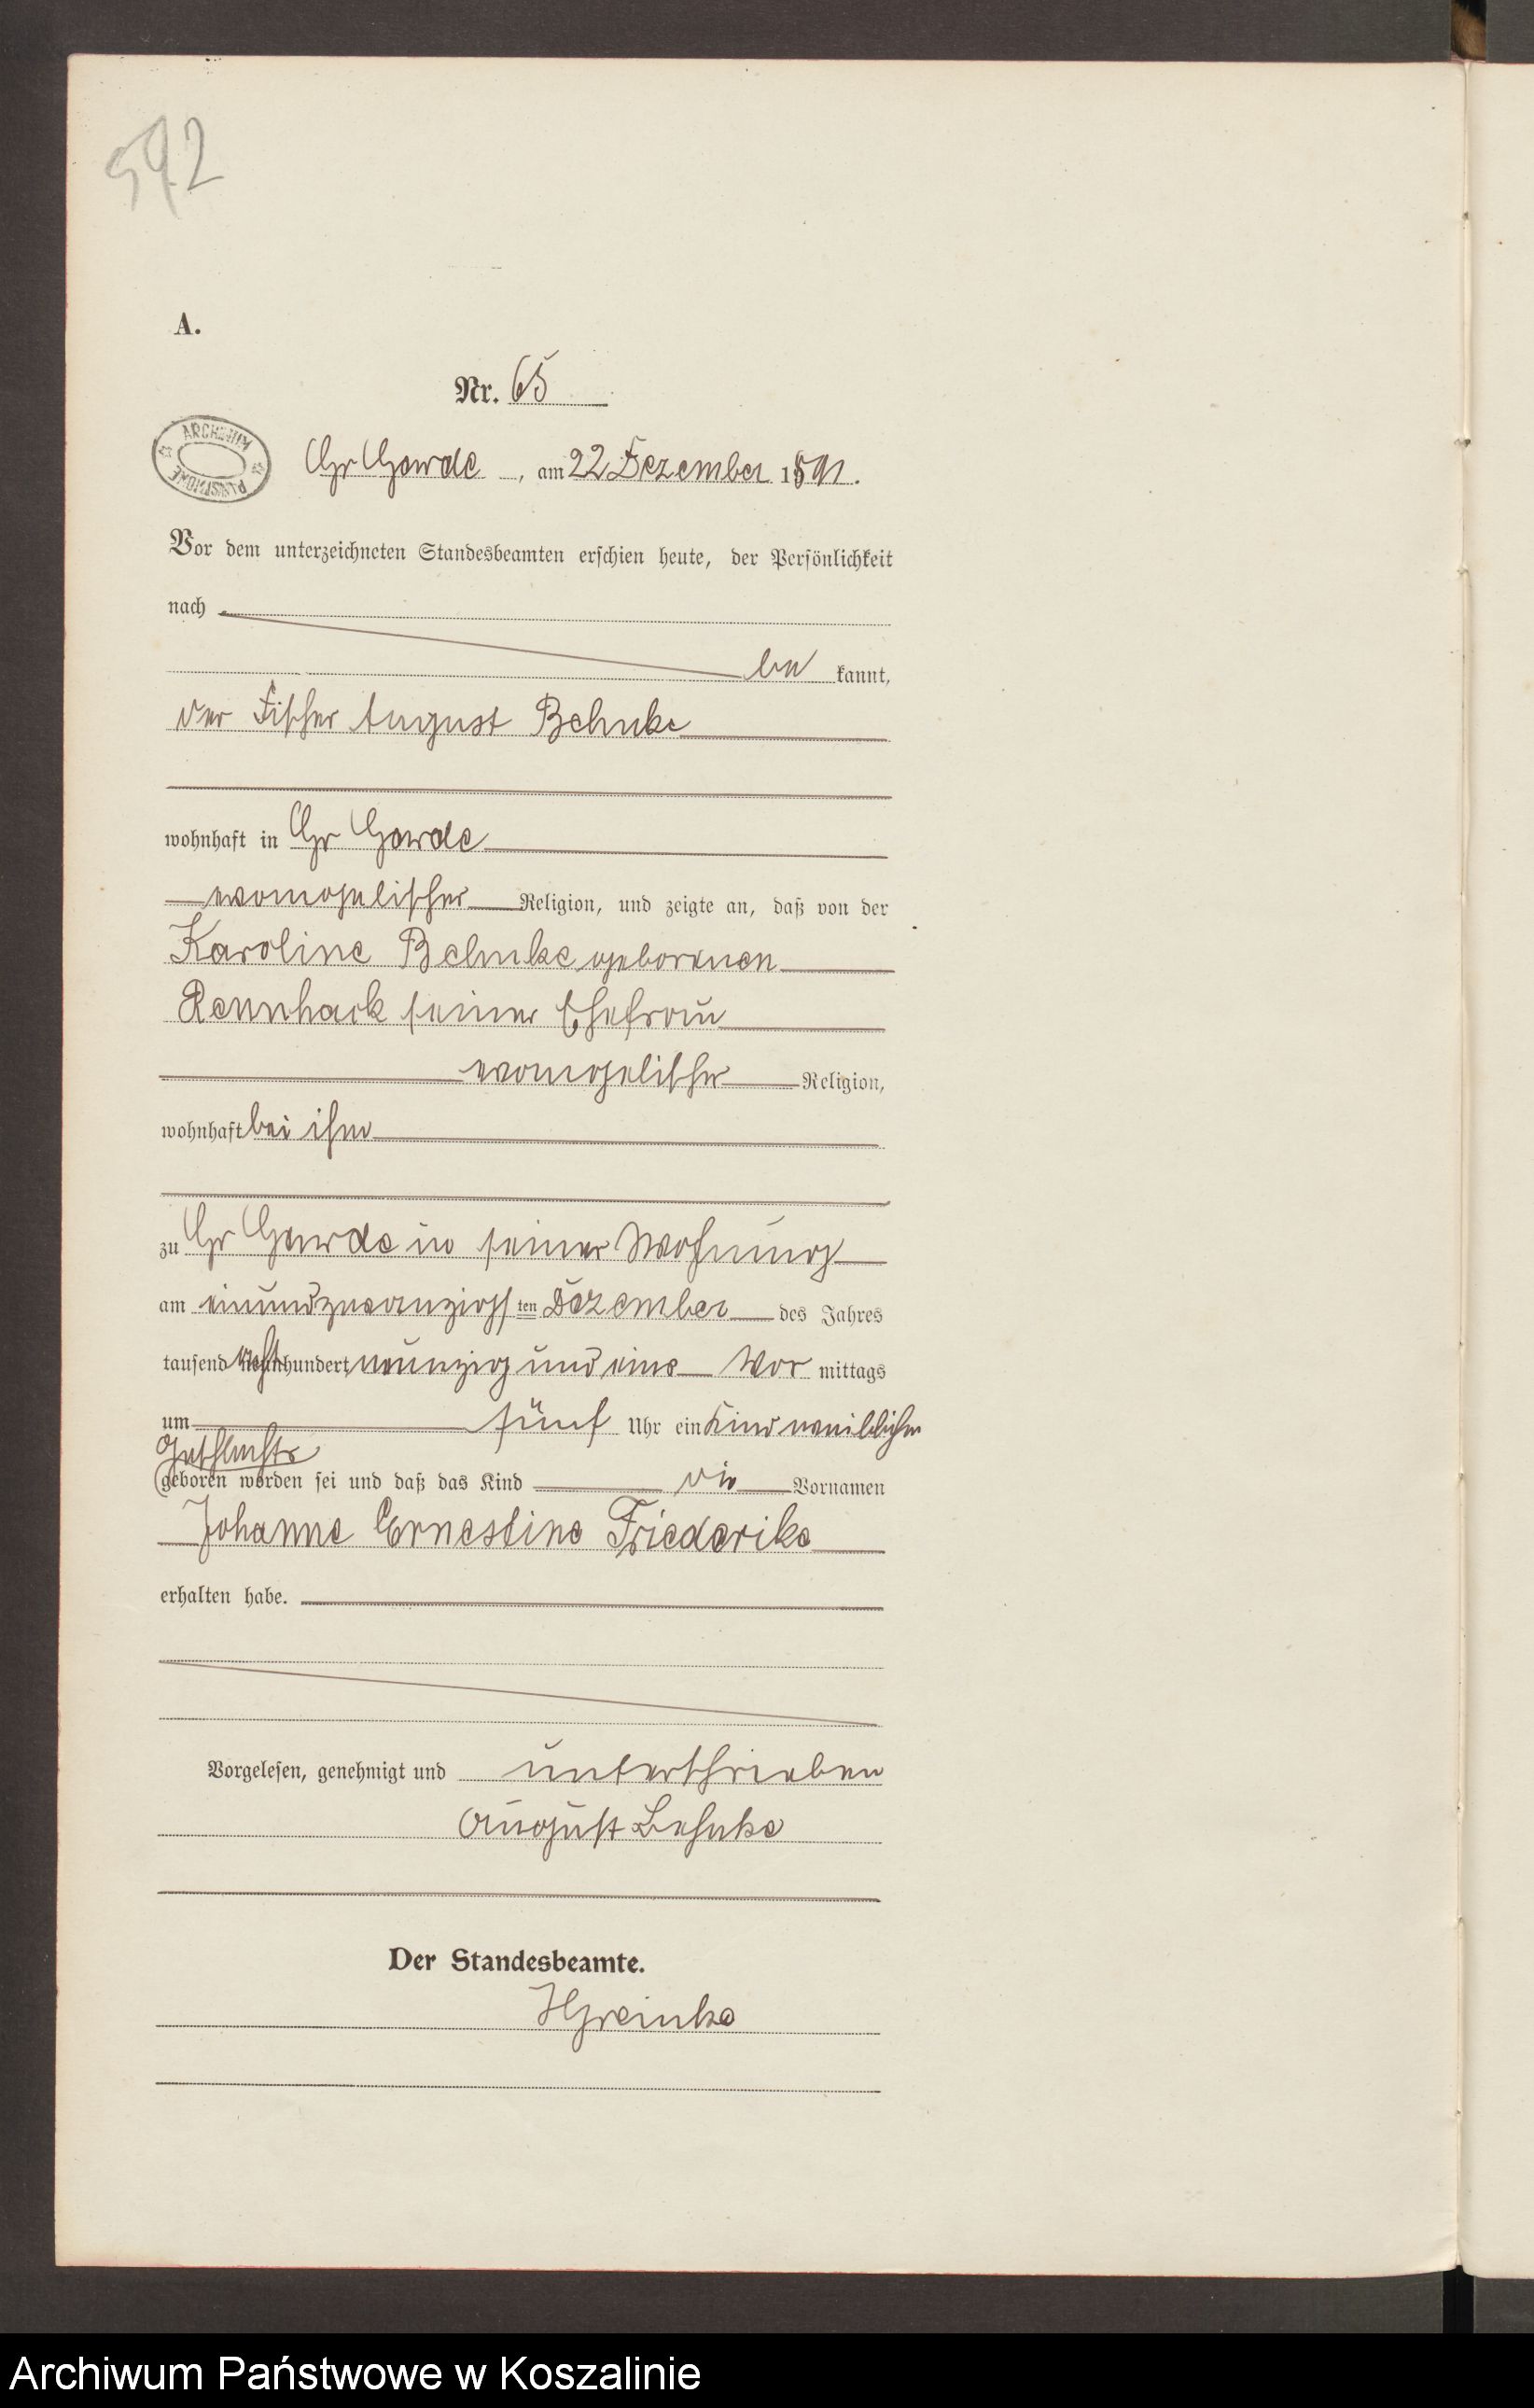 592
A.
Nr. 65
ARCHIWUM PAŃSTWOWE
Gr Garde, am 22 Dezember 1891.
Vor dem unterzeichneten Standesbeamten erschien heute, der Persönlichkeit
nach
be kannt,
der Fischer August Behnke
wohnhaft in Gr Garde
evangelischer Religion, und zeigte an, daß von der
Karoline Behnke geborenen
Rennhack seiner Ehefrau
evangelischer Religion,
wohnhaft bei ihm
zu Gr Garde in seiner Wohnung
am einundzwanzigsten Dezember des Jahres
tausend acht hundert neunzig und eins Vor mittags
um fünf Uhr ein Kind weiblichen
Geschlechts
geboren worden sei und daß das Kind die Vornamen
Johanne Ernestine Friederike
erhalten habe.
Vorgelesen, genehmigt und unterschrieben
August Behnke
Der Standesbeamte.
Archiwum Państwowe w Koszalinie